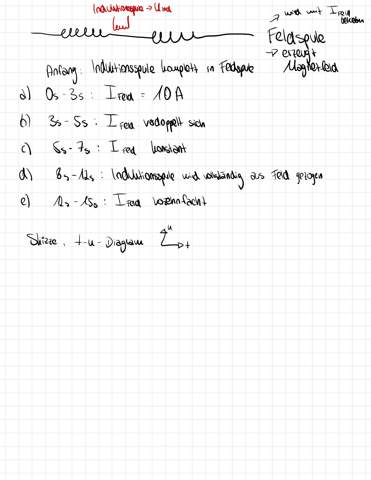 Induktionsspule → Uind
→ wird mit I Feld betrieben
Feldspule
→ erzeugt Magnetfeld
Anfang: Induktionsspule komplett in Feldspule
a) 0s - 3s : I Feld = 10 A
b) 3s - 5s : I Feld verdoppelt sich
c) 5s - 7s : I Feld konstant
d) 8s - 12s : Induktionsspule wird vollständig aus Feld gezogen
e) 12s - 15s : I Feld verzehnfacht
Skizze, t-u-Diagram
u
t